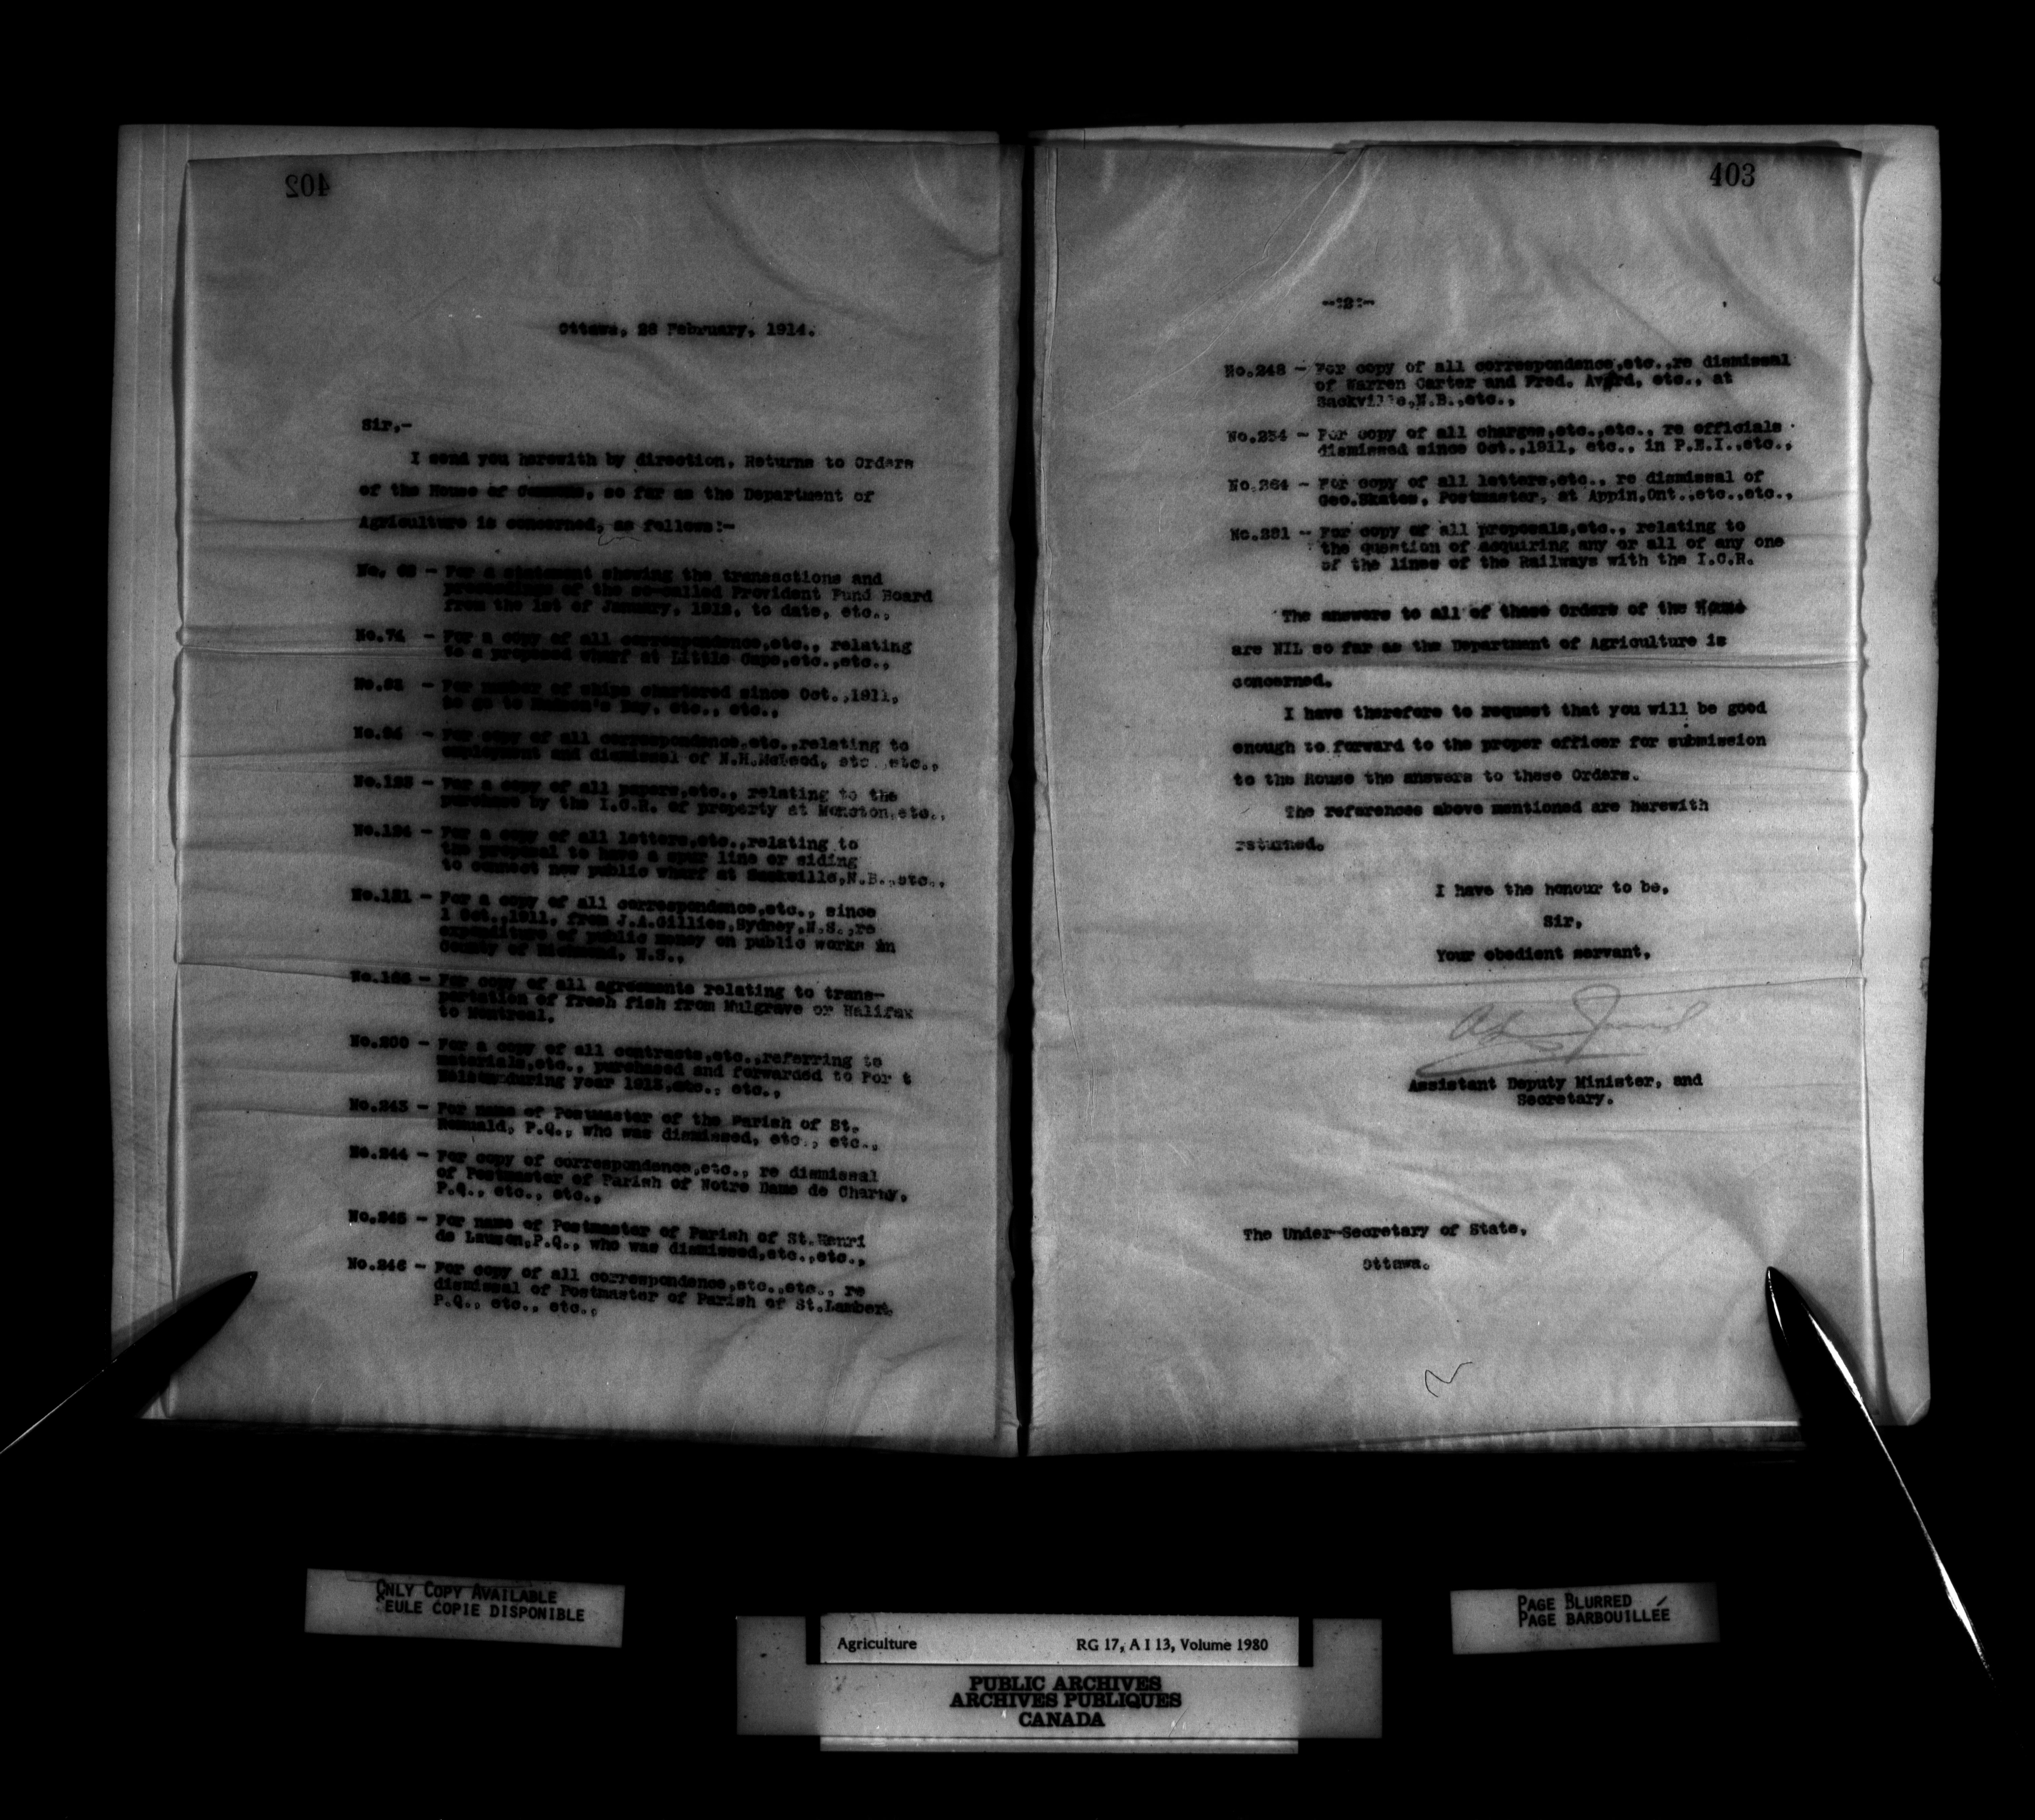 402
Ottawa, 28 February, 1914.
Sir,-
I send you herewith by direction, Returns to Orders
of the House of Commons, so far as the Department of
Agriculture is concerned, as follows:-
No. - For a statement showing the transactions and
proceedings of the so-called Provident Fund Board
from the 1st of January, 1912, to date, etc.,
No.74 - For a copy of all correspondence,etc., relating
to a proposed wharf at Little Cape,etc.,etc.,
No. - For number of ships chartered since Oct.,1911,
to go to Hudson's Bay, etc., etc.,
No.94 - For copy of all correspondence,etc.,relating to
employment and dismissal of N.H.McLeod, etc.,etc.,
No.123 - For a copy of all papers,etc., relating to the
purchase by the I.C.R. of property at Moncton,etc.,
No.124 - For a copy of all letters,etc.,relating to
the proposal to have a spur line or siding
to connect new public wharf at Sackville,N.B.,etc.,
No.151 - For a copy of all correspondence,etc., since
1 Oct.,1911, from J.A.Gillies,Sydney,N.S.,re
expenditure of public money on public works in
County of Richmond, N.S.,
No. - For copy of all agreements relating to trans-
portation of fresh fish from Mulgrave or Halifax
to Montreal.
No.200 - For a copy of all contracts,etc.,referring to
materials,etc., purchased and forwarded to Por t
Nelson during year 1913,etc., etc.,
No.243 - For name of Postmaster of the Parish of St.
Romuald, P.Q., who was dismissed, etc., etc.,
No.244 - For copy of correspondence,etc., re dismissal
of Postmaster of Parish of Notre Dame de Charny,
P.Q., etc., etc.,
No.245 - For name of Postmaster of Parish of St.Henri
de Lauzon,P.Q., who was dismissed,etc.,etc.,
No.246 - For copy of all correspondence,etc.,etc., re
dismissal of Postmaster of Parish of St.Lambert,
P.Q., etc., etc.,
403
-:2:-
No.248 - For copy of all correspondence,etc.,re dismissal
of Warren Carter and Fred. Avard, etc., at
Sackville,N.B.,etc.,
No.254 - For copy of all charges,etc.,etc., re officials
dismissed since Oct.,1911, etc., in P.E.I.,etc.,
No.264 - For copy of all letters,etc., re dismissal of
Geo.Skates, Postmaster, at Appin,Ont.,etc.,etc.,
No.281 - For copy of all proposals,etc., relating to
the question of acquiring any or all of any one
of the lines of the Railways with the I.C.R.
The answers to all of these Orders of the House
are NIL so far as the Department of Agriculture is
concerned.
I have therefore to request that you will be good
enough to forward to the proper officer for submission
to the House the answers to these Orders.
The references above mentioned are herewith
returned.
I have the honour to be,
Sir,
Your obedient servant,
Assistant Deputy Minister, and
Secretary.
The Under-Secretary of State,
Ottawa.
ONLY COPY AVAILABLE
SEULE COPIE DISPONIBLE
PAGE BLURRED
PAGE BARBOUILLÉE
Agriculture RG 17, A I 13, Volume 1980
PUBLIC ARCHIVES
ARCHIVES PUBLIQUES
CANADA